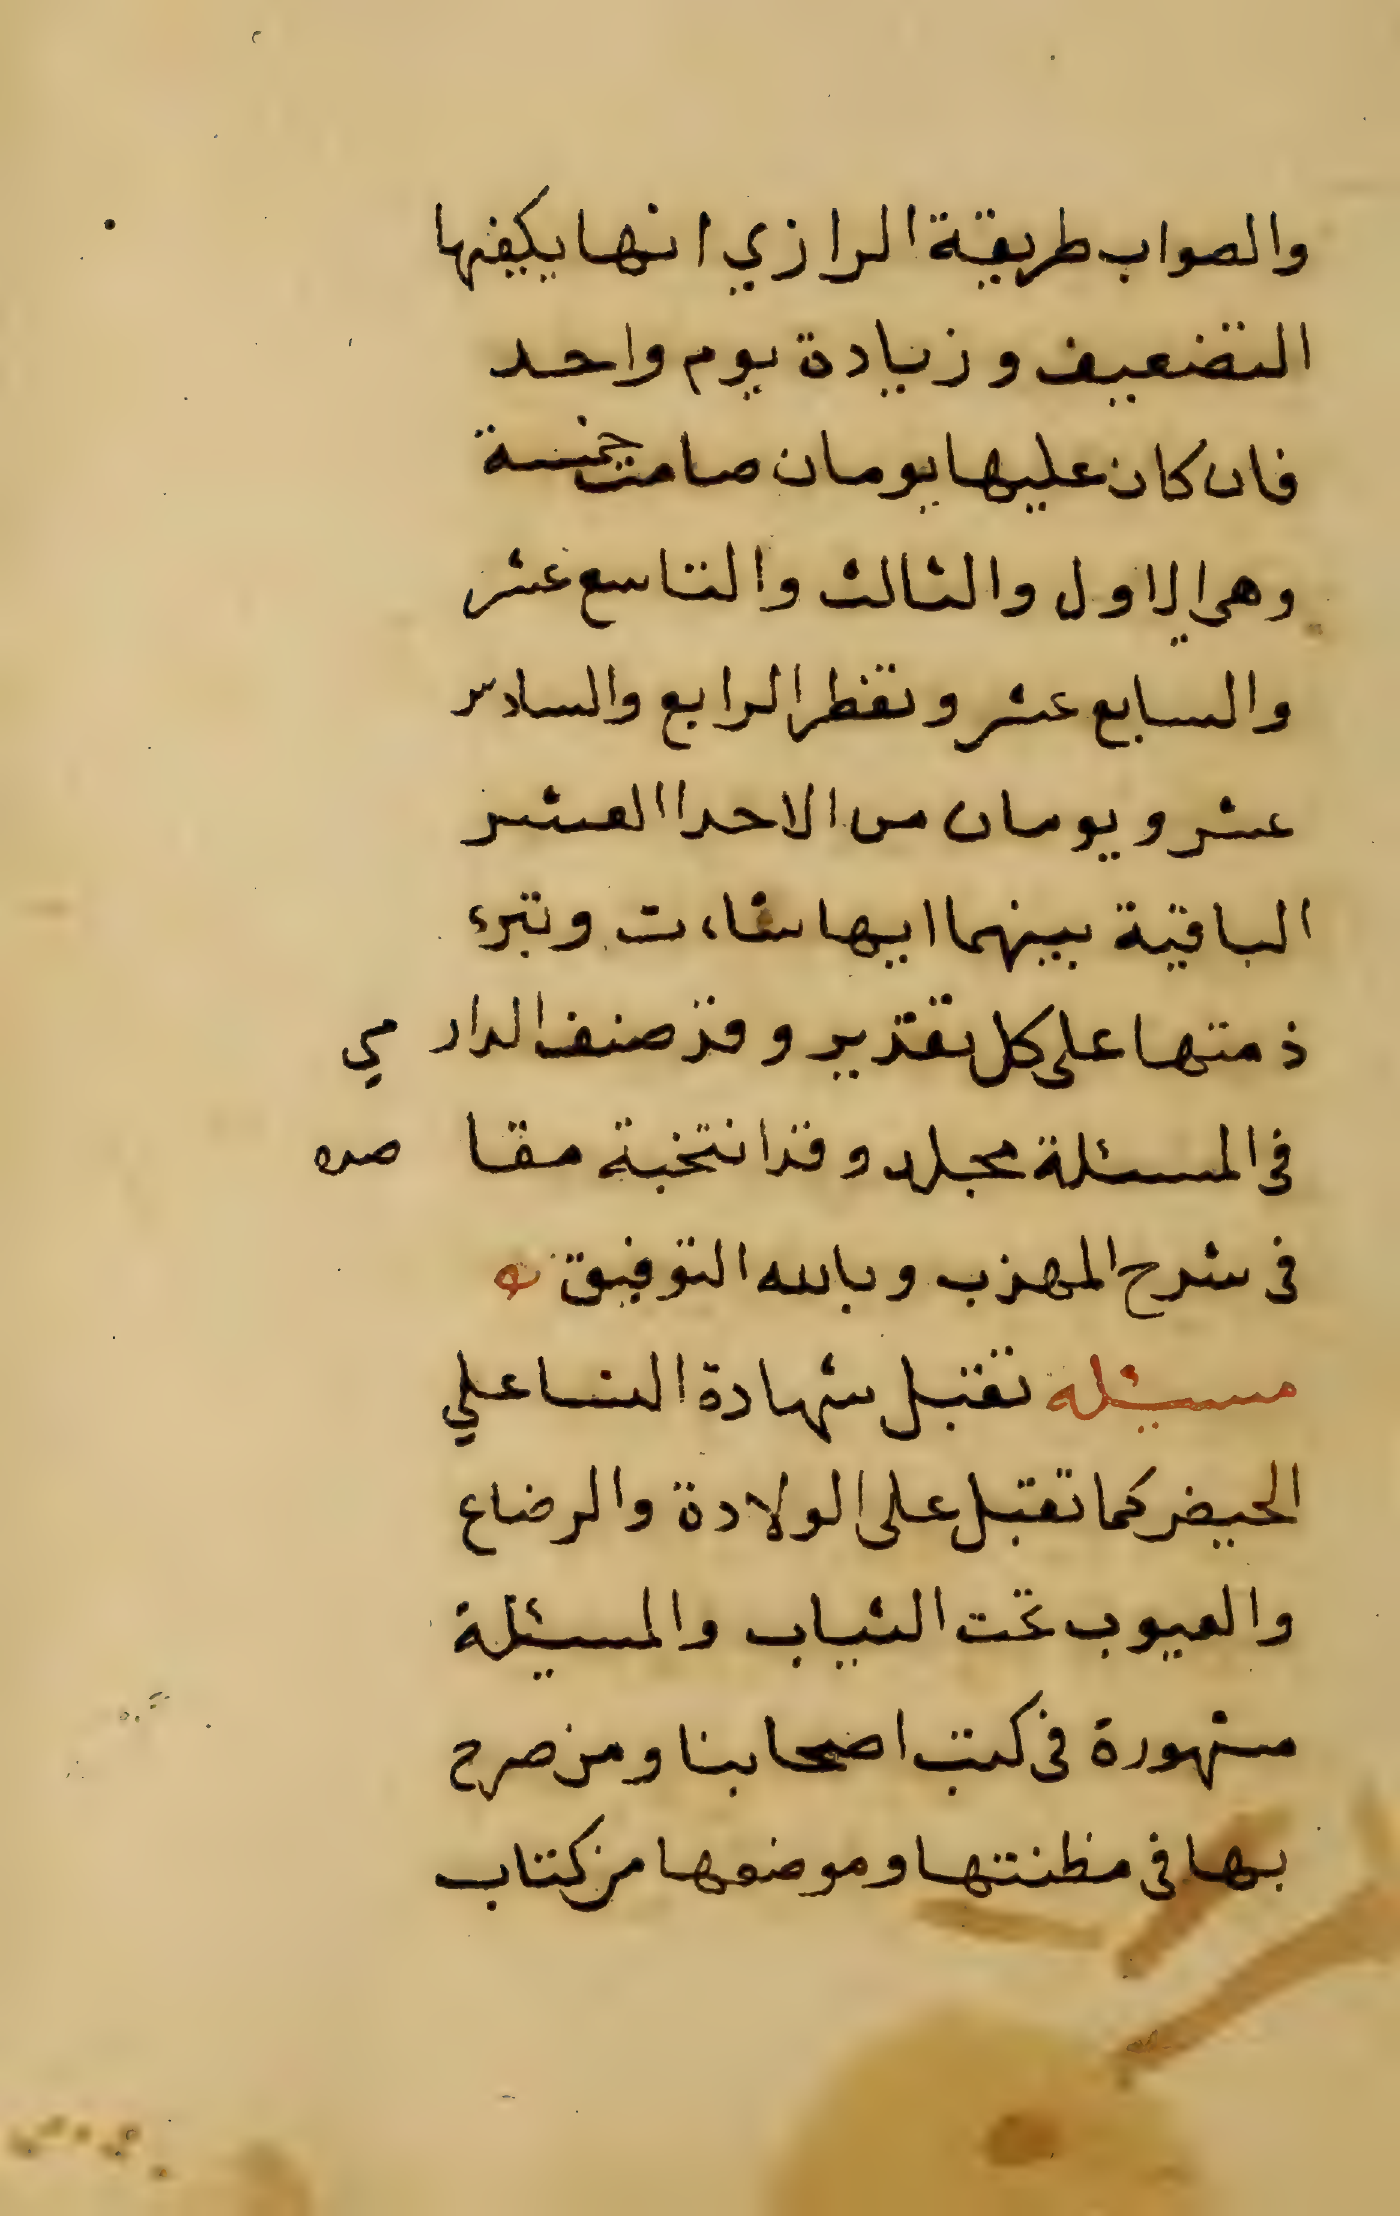 والصواب طريقة الرازي انها يكفيها
التضعيف وزيادة يوم واحد
فان كان عليها يومان صامت خمسة
وهى الاول والثالث والتاسع عشر
والسابع عشر وتفطر الرابع والسادس
عشر ويومان من الاحدا العشر
الباقية بينهما ايها شاءت وتبرء
ذمتها على كل تقذير وقذ صنف الدارمي
فى المسئلة مجلد وقذ انتخبة مقاصده
فى شرح المهذب وبالله التوفيق ه
مسئله تقبل شهادة النسا علي
الحيض كما تقبل على الولادة والرضاع
والعيوب تحت الثياب والمسئلة
مشهورة فى كتب اصحابنا ومن صرح
بها فى مظنتها وموضعها من كتاب